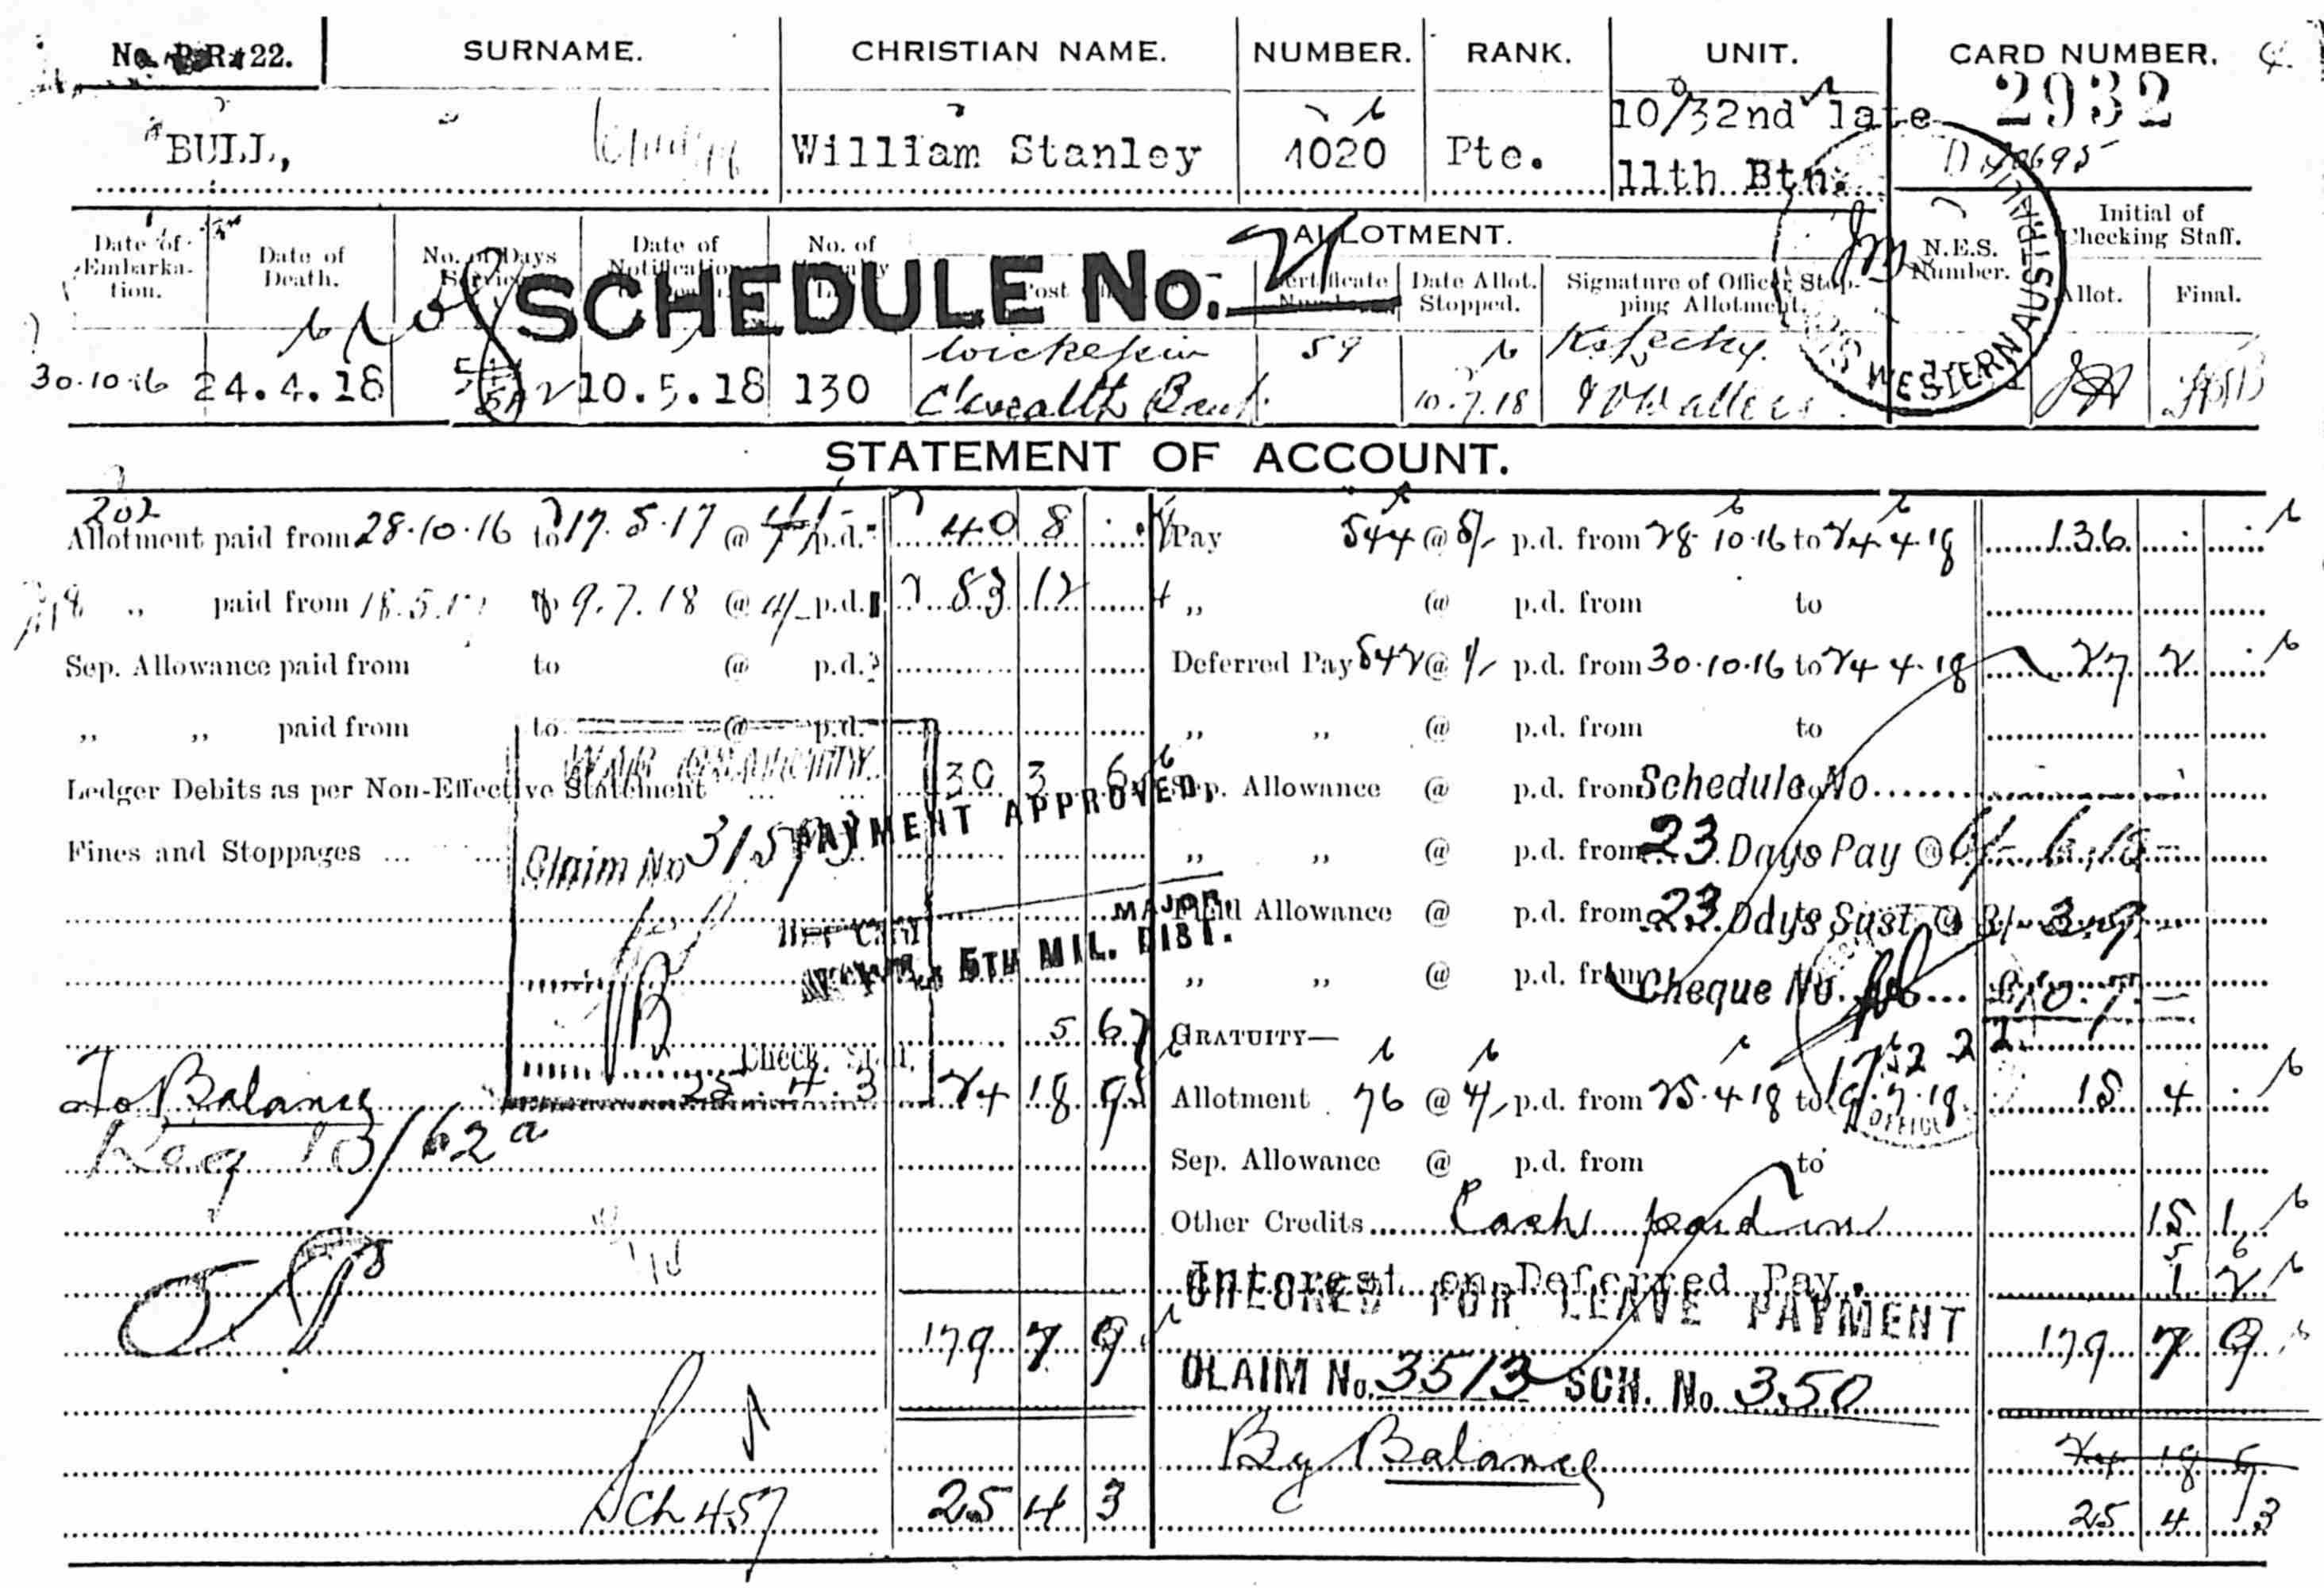 SURNAME. CHRISTIAN NAME. NUMBER. RANK. UNIT. CARD NUMBER.
2932
BULL, William Stanley 1020 Pte. 10/32nd late
11th Btn.
Date of Embarka-tion. Date of Death. No. of Days Date of No. of ALLOTMENT. N.E.S. Number. Initial of Checking Staff.
Certificate Date Allot. Stopped. Signature of Officer Stop-ping Allotment. Allot. Final.
SCHEDULE No. 21
WESTERN AUSTRALIA
Wickepin 59
30.10.16 24.4.18 10.5.18 130 C'wealth Bank 10.7.18
STATEMENT OF ACCOUNT.
202
Allotment paid from 28.10.16 to 17.5.17 @ 4/- p.d. 40 8 .
" paid from 18.5.17 to 9.7.18 @ 4/- p.d. 83 12
Sep. Allowance paid from to @ p.d.
" " paid from to @ p.d.
WAR GRATUITY
Ledger Debits as per Non-Effective Statement ... ... 30 3 6
PAYMENT APPROVED,
Fines and Stoppages ... ...
Claim No
MAJOR.
5TH MIL. DIST.
5 6
Check. Staff.
25 4 3
To Balance 24 18 9
Reg 13/62a
179 7 9
Sch 457 25 4 3
Pay 544 @ 5/- p.d. from 28 10.16 to 24 4.18 136 . .
" @ p.d. from to
Deferred Pay 542 @ 1/- p.d. from 30.10.16 to 24 4.18 27 2 .
" " @ p.d. from to
Sep. Allowance @ p.d. from Schedule No
" " @ p.d. from 23 Days Pay @ 6/-
Field Allowance @ p.d. from 23 Days Sust. @ 3/- 3.9.-
" " @ p.d. from Cheque No. £10.7.-
GRATUITY—
Allotment 76 @ 4/- p.d. from 25.4.18 to 9.7.18 15 4 .
Sep. Allowance @ p.d. from to
Other Credits Cash paid in 15 1
5 6
Interest on Deferred Pay. 1 2
CHECKED FOR LEAVE PAYMENT
179 7 9
CLAIM No. 3513 SCH. No. 350
By Balance 24 18 9
25 4 3